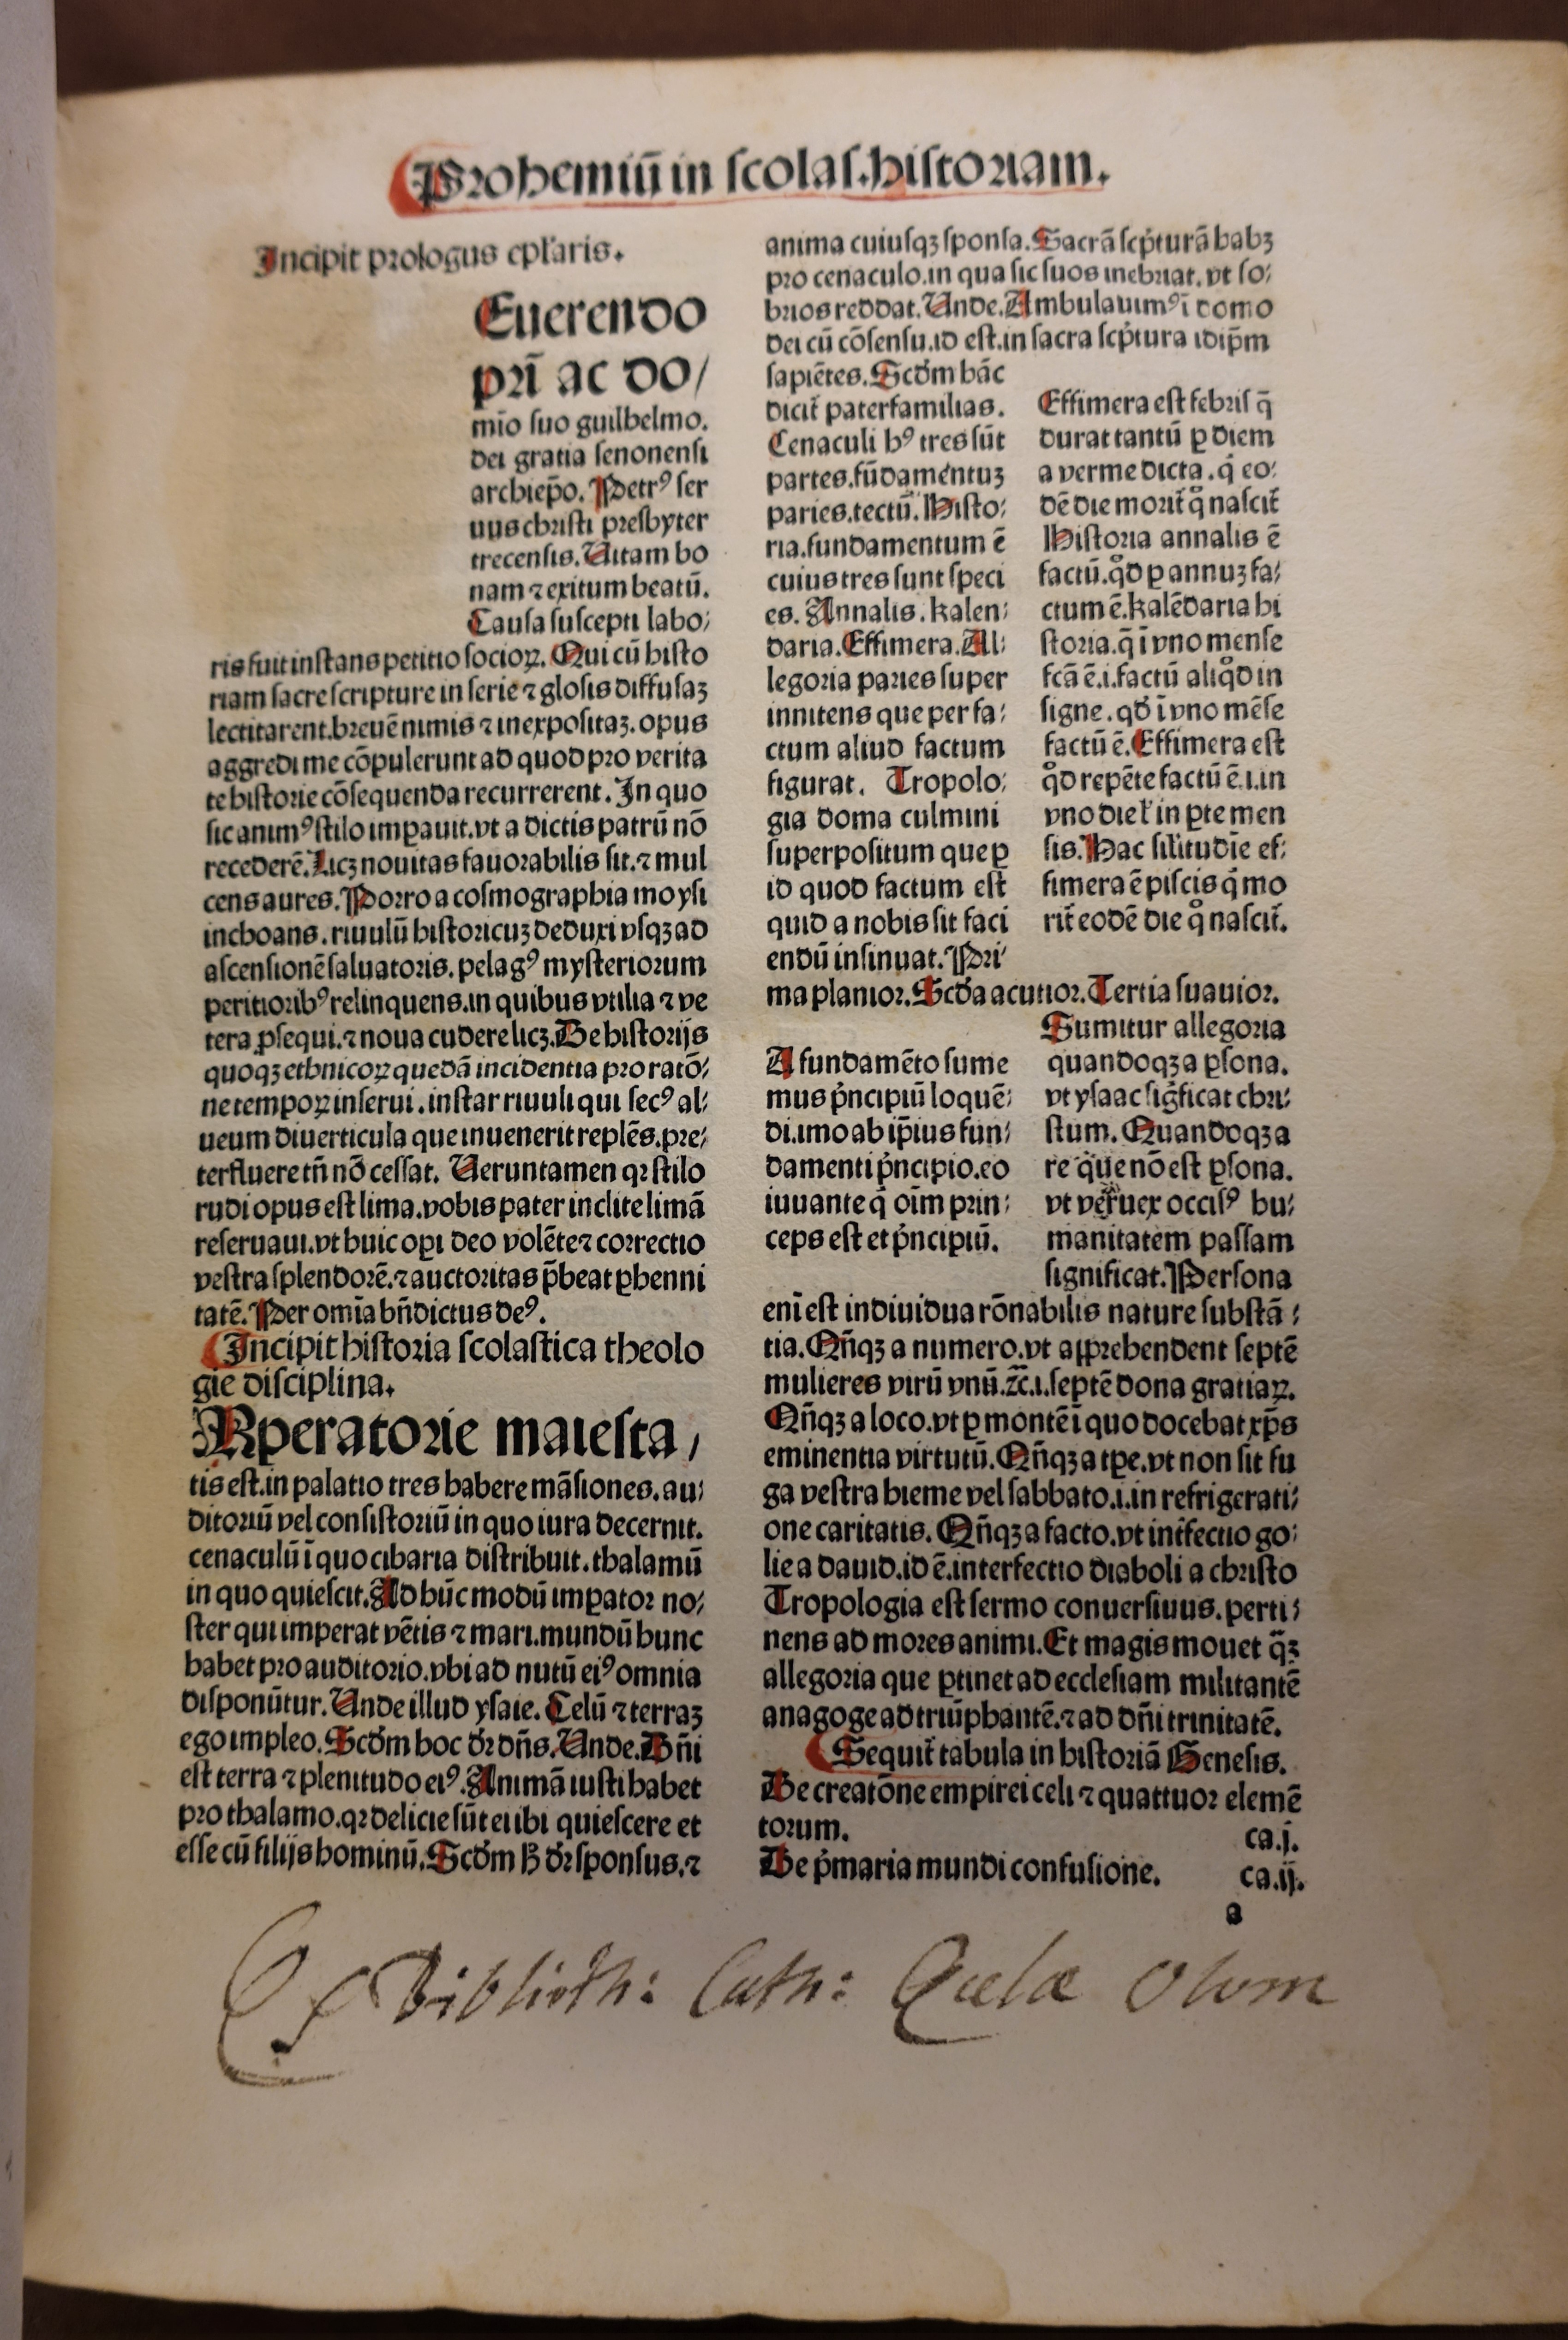 Prohemiū in scolas. historiam.
Incipit prologus epl'aris.
Euerendo
pr̄i ac do/
mīo suo guilhelmo.
dei gratia senonensi
archiep̄o. Petrꝰ ser
uus christi presbyter
trecensis. Uitam bo
nam ⁊ exitum beatū.
Causa suscepti labo/
ris fuit instans petitio socioꝝ. Qui cū histo
riam sacre scripture in serie ⁊ glosis diffusaȝ
lectitarent. breuē nimis ⁊ inexpositaȝ. opus
aggredi me cōpulerunt ad quod pro verita
te historie cōsequenda recurrerent. In quo
sic animꝰ stilo imꝑauit. vt a dictis patrū nō
recederē. Licȝ nouitas fauorabilis sit. ⁊ mul
cens aures. Porro a cosmographia moysi
inchoans. riuulū historicuȝ deduxi vsqȝ ad
ascensionē saluatoris. pelagꝰ mysteriorum
peritioribꝰ relinquens. in quibus vtilia ⁊ ve
tera ꝓsequi. ⁊ noua cudere licȝ. De historijs
quoqȝ ethnicoꝝ quedā incidentia pro ratō/
ne tempoꝝ inserui. instar riuuli qui secꝰ al/
ueum diuerticula que inuenerit replēs. pre/
terfluere tn̄ nō cessat. Ueruntamen qꝛ stilo
rudi opus est lima. vobis pater inclite limā
reseruaui. vt huic oꝑi deo volēte ⁊ correctio
vestra splendorē. ⁊ auctoritas p̄beat ꝑhenni
tatē. Per omīa bn̄dictus deꝰ.
Incipit historia scolastica theolo
gie disciplina.
Imperatorie maiesta/
tis est. in palatio tres habere māsiones. au/
ditoriū vel consistoriū in quo iura decernit.
cenaculū ī quo cibaria distribuit. thalamū
in quo quiescit. Ad hūc modū imꝑator no/
ster qui imperat vētis ⁊ mari. mundū hunc
habet pro auditorio. vbi ad nutū eiꝰ omnia
disponūtur. Unde illud ysaie. Celū ⁊ terraȝ
ego impleo. Scd'm hoc d'ꝛ dn̄s. Unde. Dn̄i
est terra ⁊ plenitudo eiꝰ. Animā iusti habet
pro thalamo. qꝛ delicie sūt ei ibi quiescere et
esse cū filijs hominū. Scd'm ħ d'ꝛ sponsus. ⁊
anima cuiusqȝ sponsa. Sacrā scp̄turā habȝ
pro cenaculo. in qua sic suos inebriat. vt so/
brios reddat. Unde. Ambulauimꝰ ī domo
dei cū cōsensu. id est. in sacra scp̄tura idip̄m
sapiētes. Scd'm hāc
dicit̄ paterfamilias.
Cenaculi hꝰ tres sūt
partes. fūdamentuȝ
paries. tectū. Histo/
ria. fundamentum ē
cuius tres sunt speci
es. Annalis. kalen/
daria. Effimera. Al/
legoria paries super
innitens que per fa/
ctum aliud factum
figurat. Tropolo/
gia doma culmini
superpositum que ꝑ
id quod factum est
quid a nobis sit faci
endū insinuat. Pri/
ma planior. Scd'a acutior. Tertia suauior.
Effimera est febris q̄
durat tantū ꝑ diem
a verme dicta. q̇ eo/
dē die morit̄ qͦ nascit̄
Historia annalis ē
factū. qͦd ꝑ annuȝ fa/
ctum ē. kalēdaria hi
storia. q̄ ī vno mense
fcā ē. i. factū aliqͦd in
signe. qd' ī vno mēse
factū ē. Effimera est
qͦd repēte factū ē. i. in
vno die ł in ꝑte men
sis. Hac sil'itudīe ef/
fimera ē piscis q̇ mo
rit̄ eodē die qͦ nascit̄.
A fundamēto sume
mus pṅcipiū loquē/
di. imo ab ip̄ius fun/
damenti pṅcipio. eo
iuuante q̇ oīm prin/
ceps est et pṅcipiū.
Sumitur allegoria
quandoqȝ a ꝑsona.
vt ysaac siġficat chri/
stum. Quandoqȝ a
re que nō est ꝑsona.
vt veruex occisꝰ hu/
manitatem passam
significat. Persona
enī est indiuidua rōnabilis nature substā/
tia. Qn̄qȝ a numero. vt apprehendent septē
mulieres virū vnū. ⁊c̄. i. septē dona gratiaꝝ.
Qn̄qȝ a loco. vt ꝑ montē ī quo docebat xp̄s
eminentia virtutū. Qn̄qȝ a tꝑe. vt non sit fu
ga vestra hieme vel sabbato. i. in refrigerati/
one caritatis. Qn̄qȝ a facto. vt int̄fectio go/
lie a dauid. id ē. interfectio diaboli a christo
Tropologia est sermo conuersiuus. perti/
nens ad mores animi. Et magis mouet q̄ȝ
allegoria que ꝑtinet ad ecclesiam militantē
anagoge ad triūphantē. ⁊ ad dn̄i trinitatē.
Sequit̄ tabula in historiā Genesis.
De creatōne empirei celi ⁊ quattuor elemē
torum. ca. j.
De pṁaria mundi confusione. ca. ij.
a
Ex Biblioth: Cath: Eccl\ae Olom